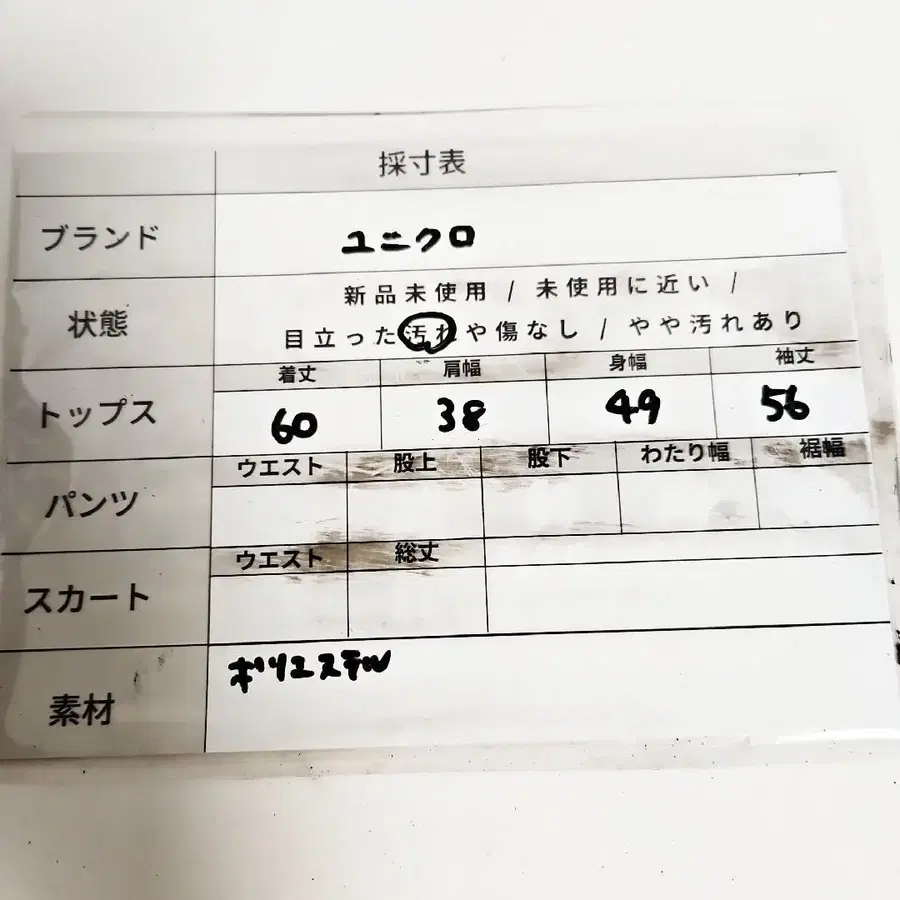 採寸表
ブランド ユニクロ
状態 新品未使用 / 未使用に近い /
目立った汚れや傷なし / やや汚れあり
着丈 肩幅 身幅 袖丈
トップス 60 38 49 56
ウエスト 股上 股下 わたり幅 裾幅
パンツ
ウエスト 総丈
スカート
素材 ポリエステル